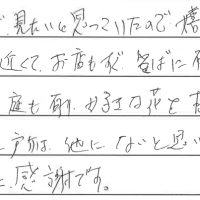 見たいと思っていたので
近くて、お店もすぐそばに
庭も有り、好きな花を
戸は、他にないと思い
感謝です。